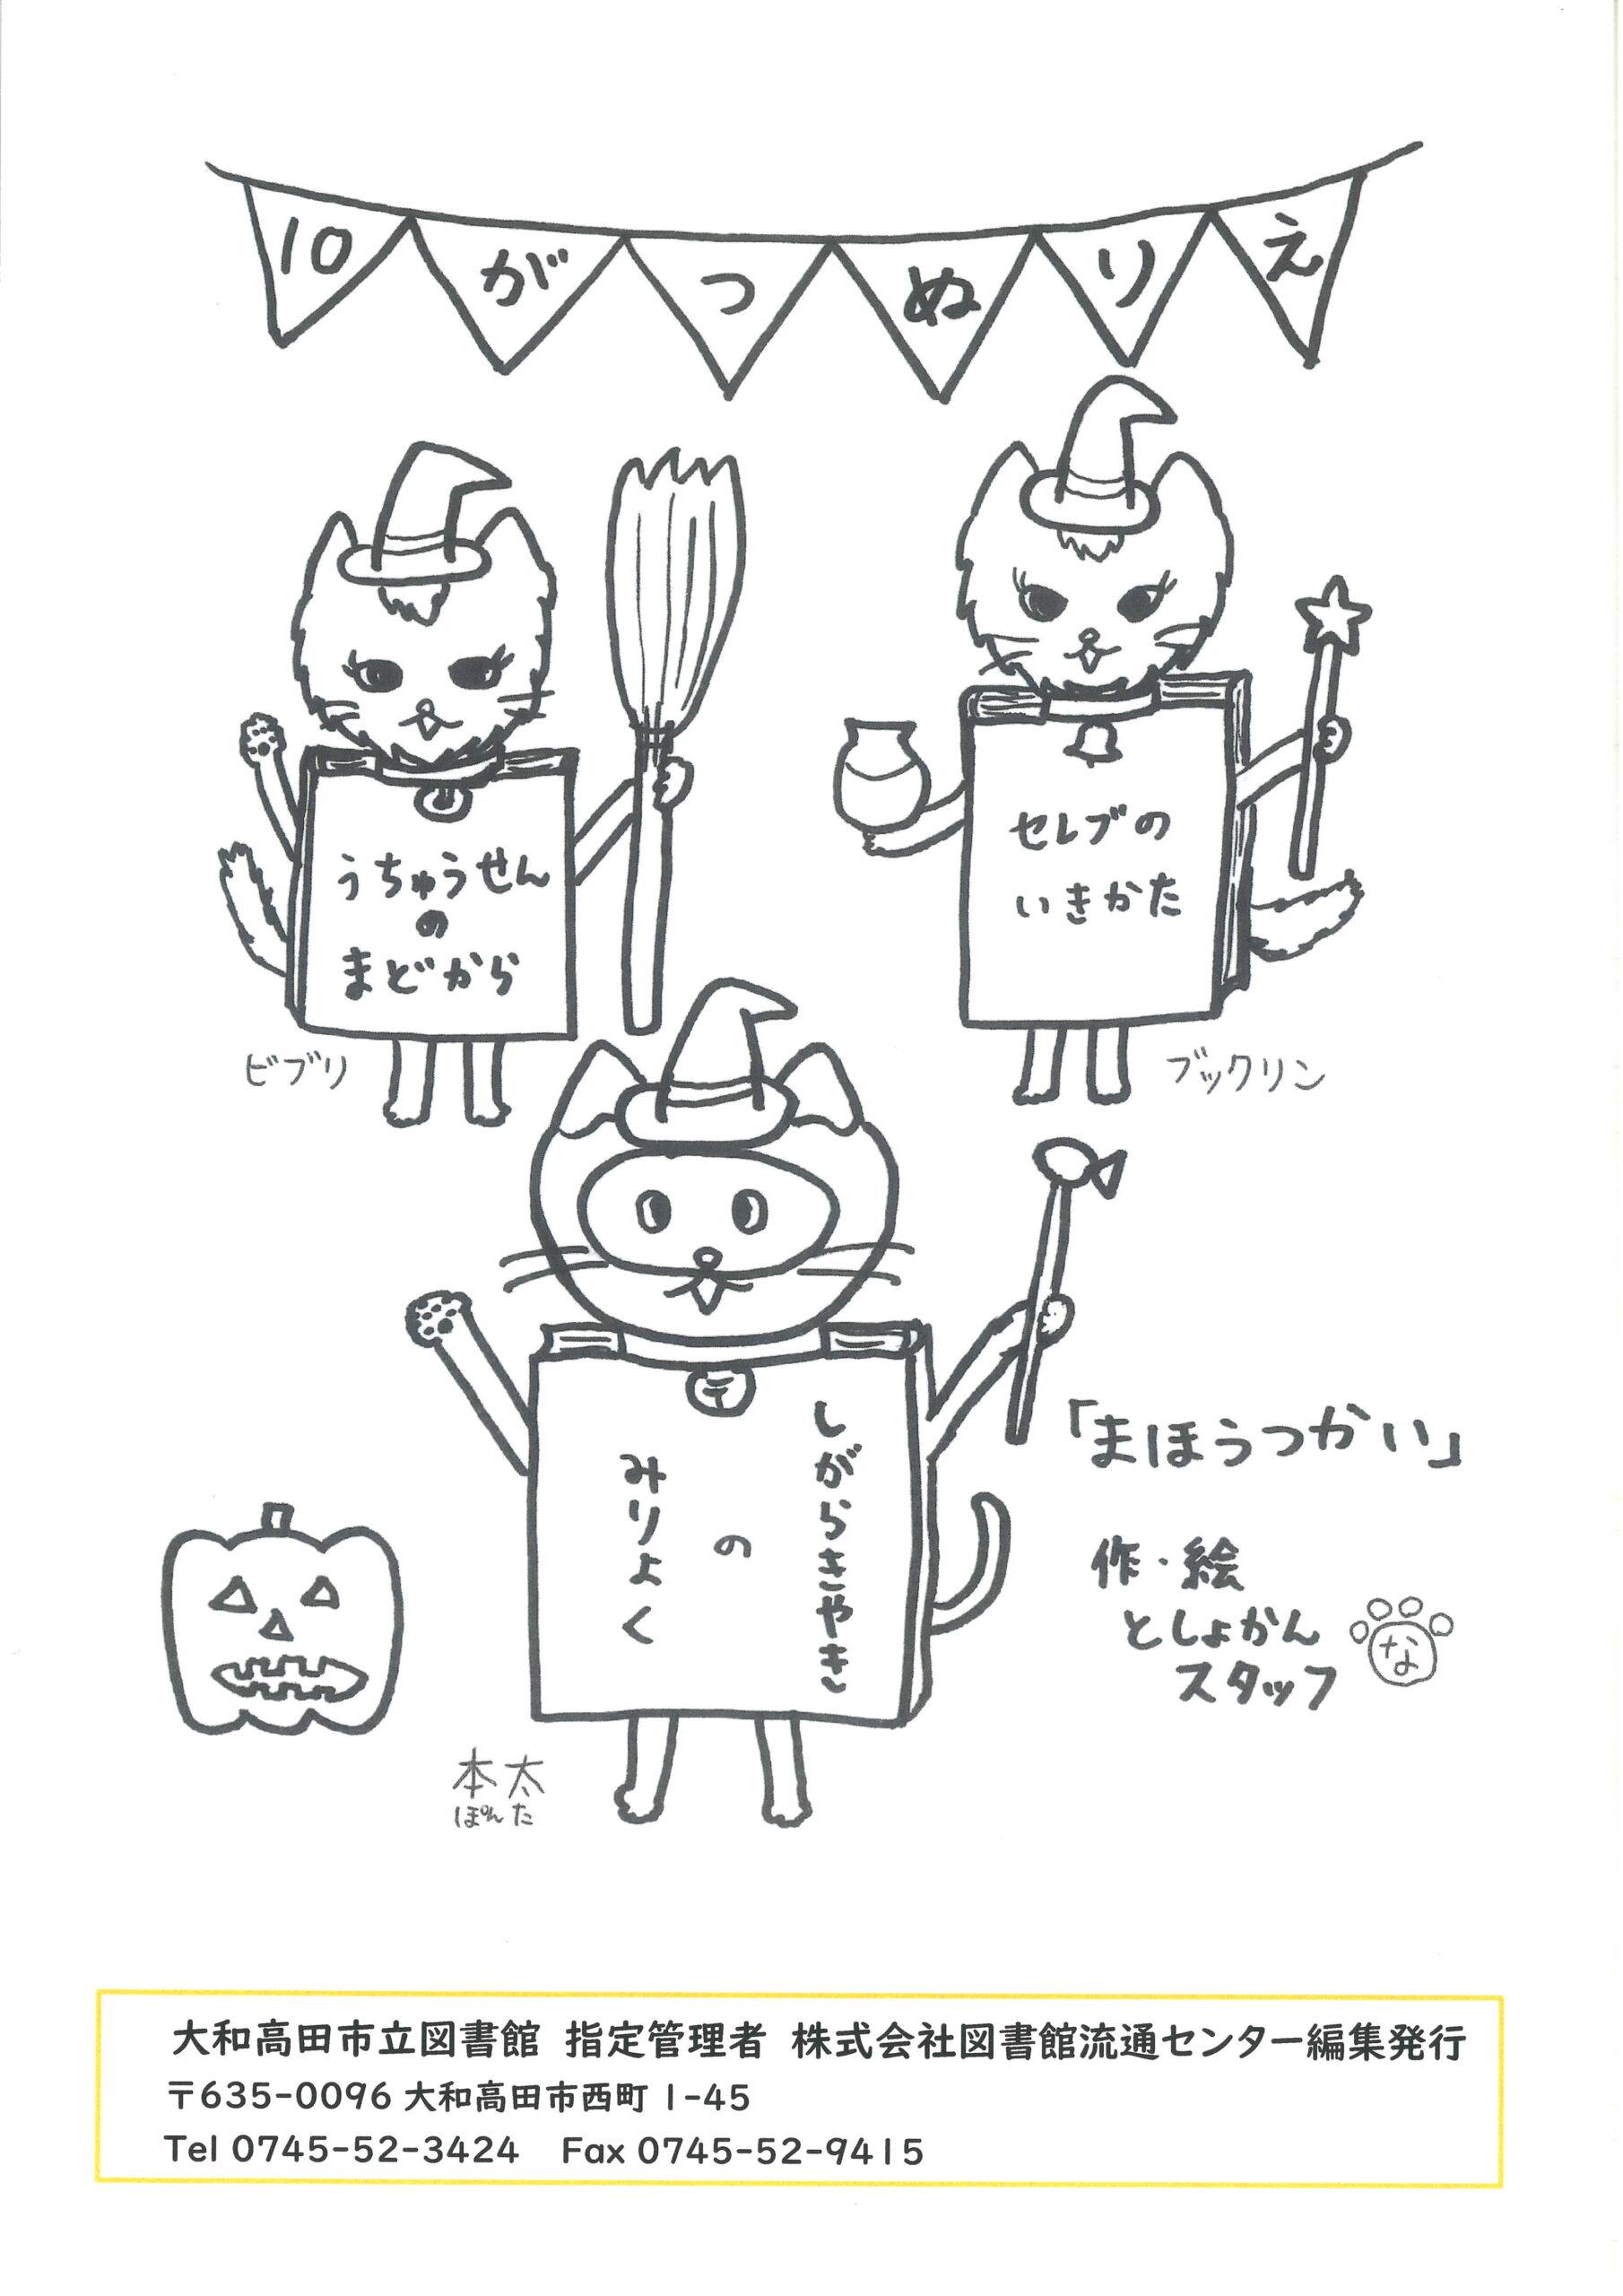 10がつぬりえ
うちゅうせん
の
まどから
ビブリ
セレブの
いきかた
ブックリン
しがらきやき
の
みりょく
本太
ぽんた
「まほうつかい」
作・絵
としょかん
スタッフ
な
大和高田市立図書館 指定管理者 株式会社図書館流通センター編集発行
〒635-0096 大和高田市西町 1-45
Tel 0745-52-3424 Fax 0745-52-9415